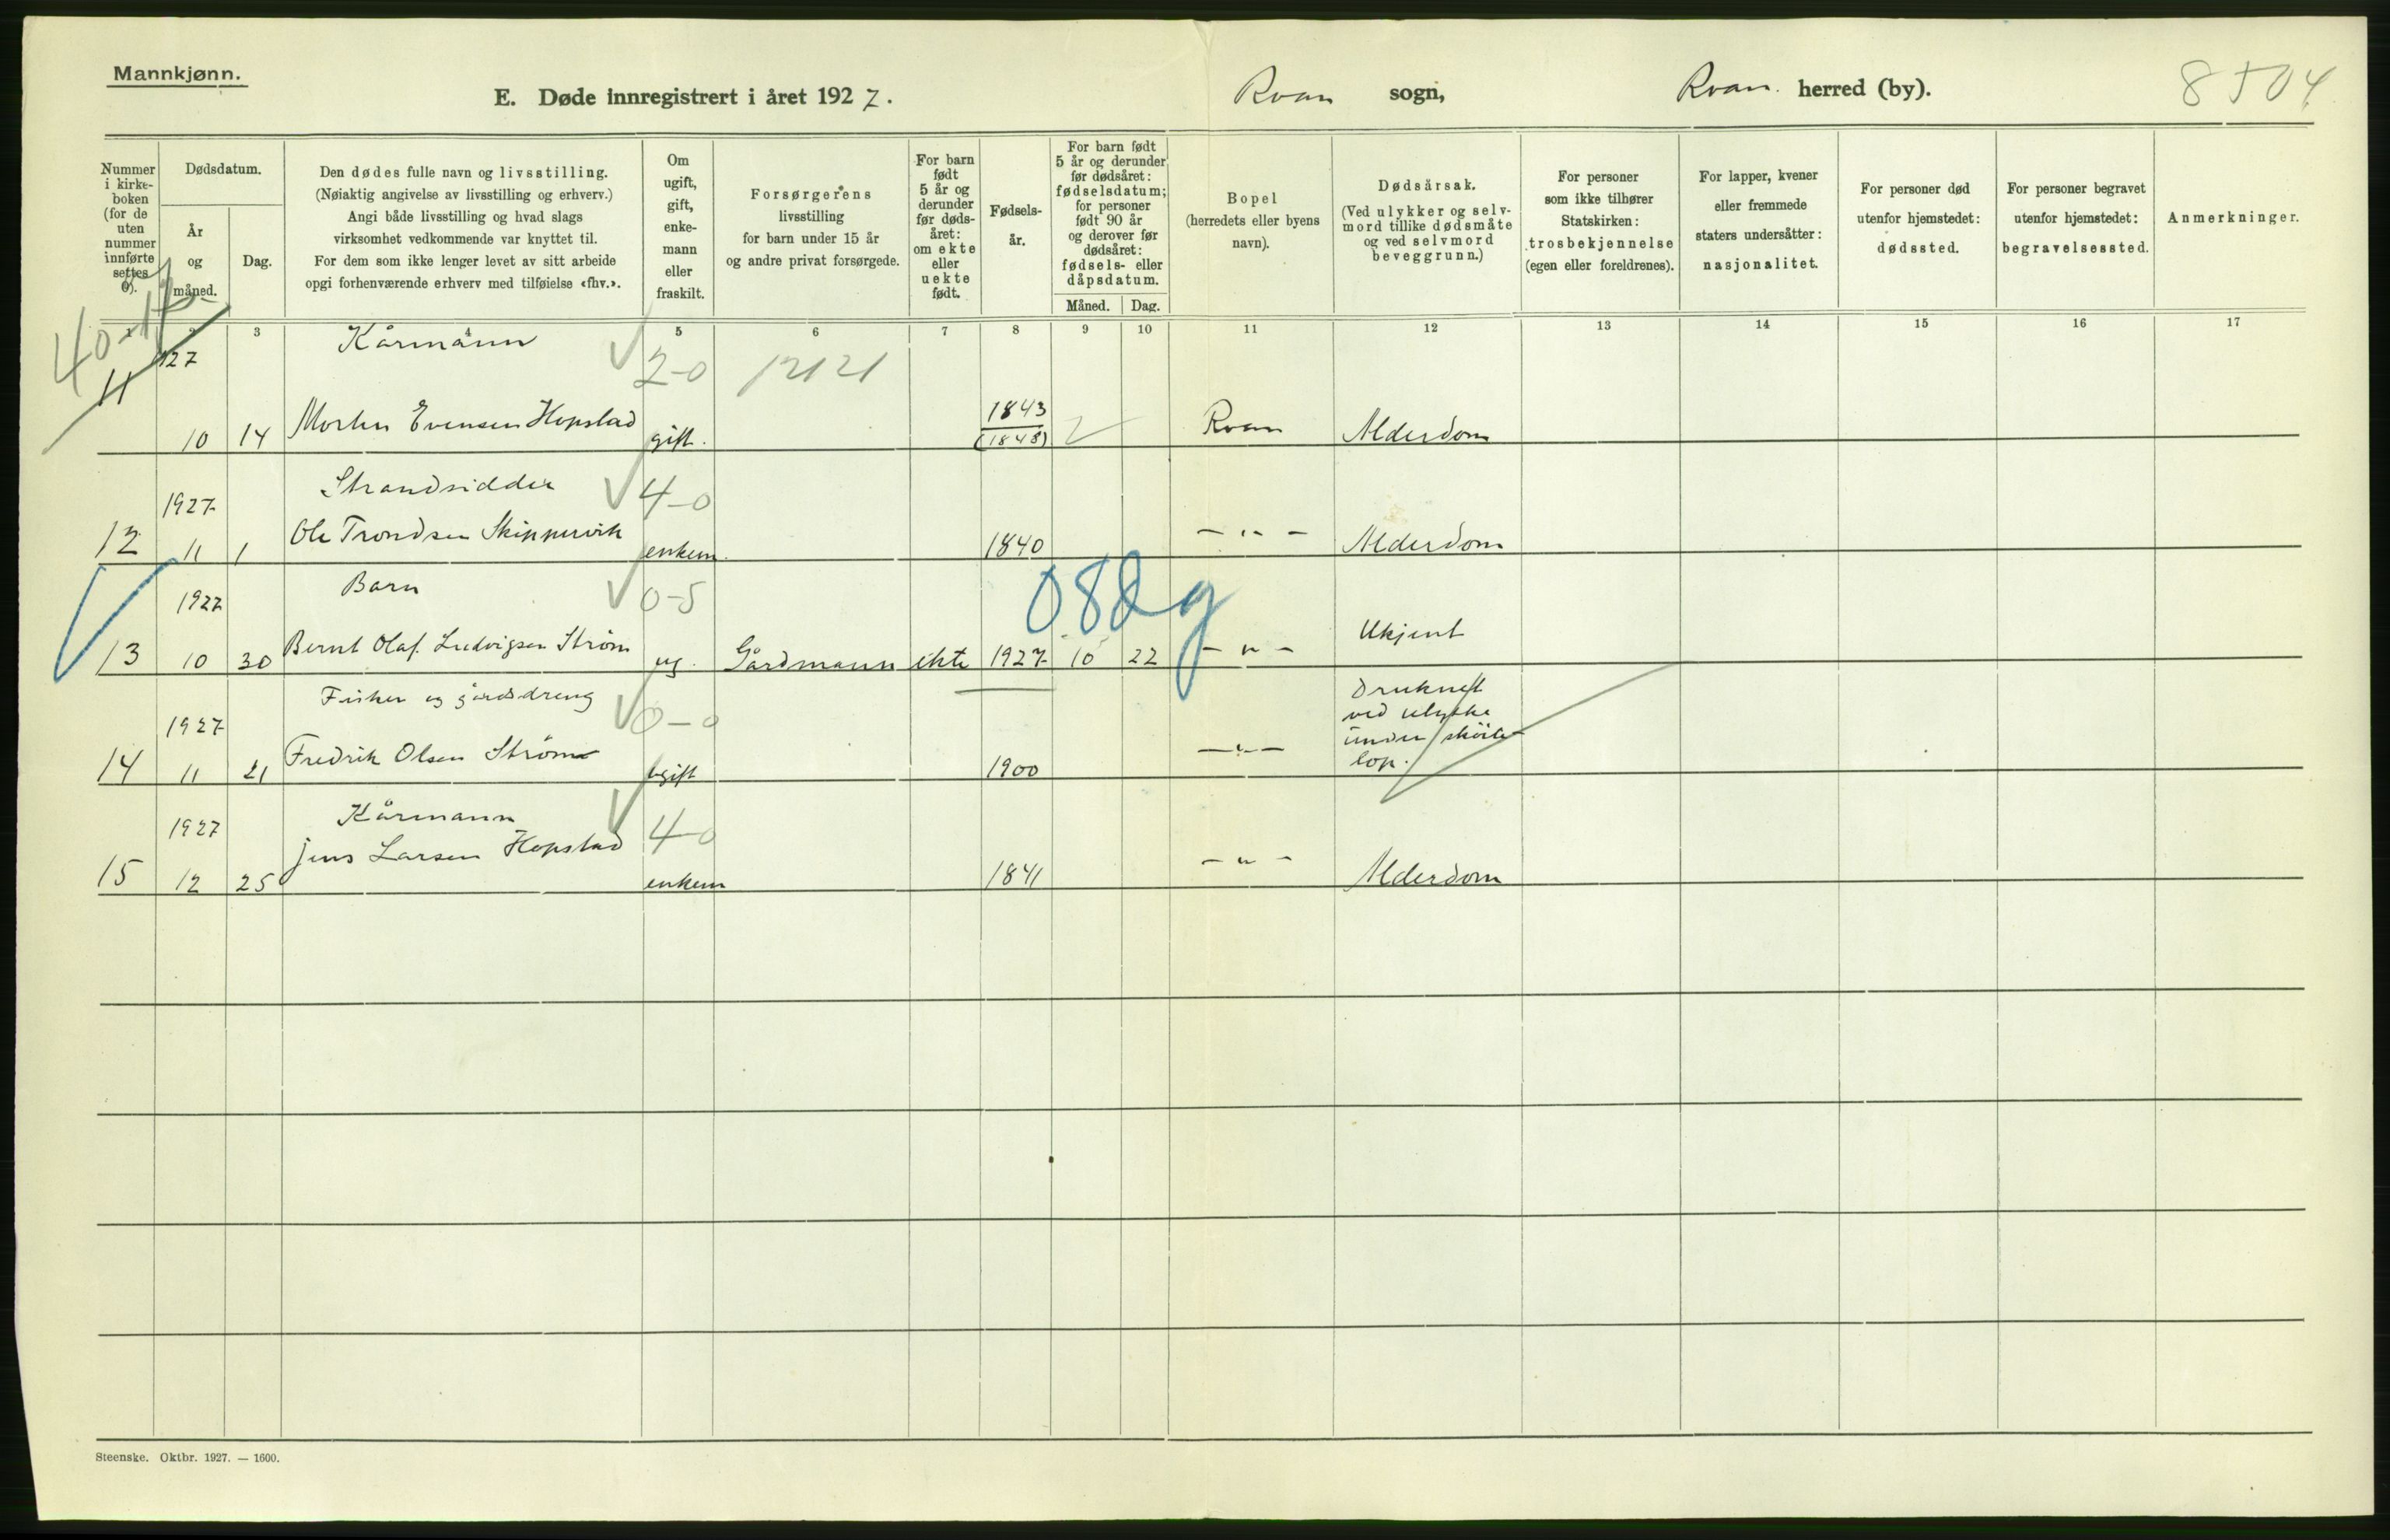 Mannkjønn.
E. Døde innregistrert i året 1927.
Roan sogn,
Roan. herred (by).
8504
Nummer i kirke-boken (for de uten nummer innførte settes 0).
Dødsdatum.
År og måned.
Dag.
Den dødes fulle navn og livsstilling.
(Nøiaktig angivelse av livsstilling og erhverv.)
Angi både livsstilling og hvad slags
virksomhet vedkommende var knyttet til.
For dem som ikke lenger levet av sitt arbeide
opgi forhenværende erhverv med tilføielse «fhv.».
Om ugift, gift, enke-mann eller fraskilt.
Forsørgerens
livsstilling
for barn under 15 år
og andre privat forsørgede.
For barn født 5 år og derunder før døds-året: om ekte eller uekte født.
Fødsels-år.
For barn født 5 år og derunder før dødsåret: fødselsdatum; for personer født 90 år og derover før dødsåret: fødsels- eller dåpsdatum.
Måned.
Dag.
Bopel
(herredets eller byens
navn).
Dødsårsak.
(Ved ulykker og selv-
mord tillike dødsmåte
og ved selvmord
beveggrunn.)
For personer
som ikke tilhører
Statskirken:
trosbekjennelse
(egen eller foreldrenes).
For lapper, kvener
eller fremmede
staters undersåtter:
nasjonalitet.
For personer død
utenfor hjemstedet:
dødssted.
For personer begravet
utenfor hjemstedet:
begravelsessted.
Anmerkninger.
1 2 3 4 5 6 7 8 9 10 11 12 13 14 15 16 17
Kårmann
2-0
12121
11 27 10 14 Morten Evensen Hopstad gift. 1843 (1848) Roan Alderdom
Strandsidder
4-0
12 1927 11 1 Ole Trondsen Skippervik enkem. 1840 - " - Alderdom
Barn
0-5
08dg
13 1927 10 30 Bernt Olaf Ludvigsen Strøm ug. Gårdmann ekte 1927 10 22 - " - Ukjent
Fisker og gårdsdreng
0-0
14 1927 11 21 Fredrik Olsen Strøm ugift 1900 - " - Druknet
ved ulykke
under skøite-
lop.
Kårmann
4-0
15 1927 12 25 Jens Larsen Hopstad enkem 1841 - " - Alderdom
Steenske. Oktbr. 1927. — 1600.